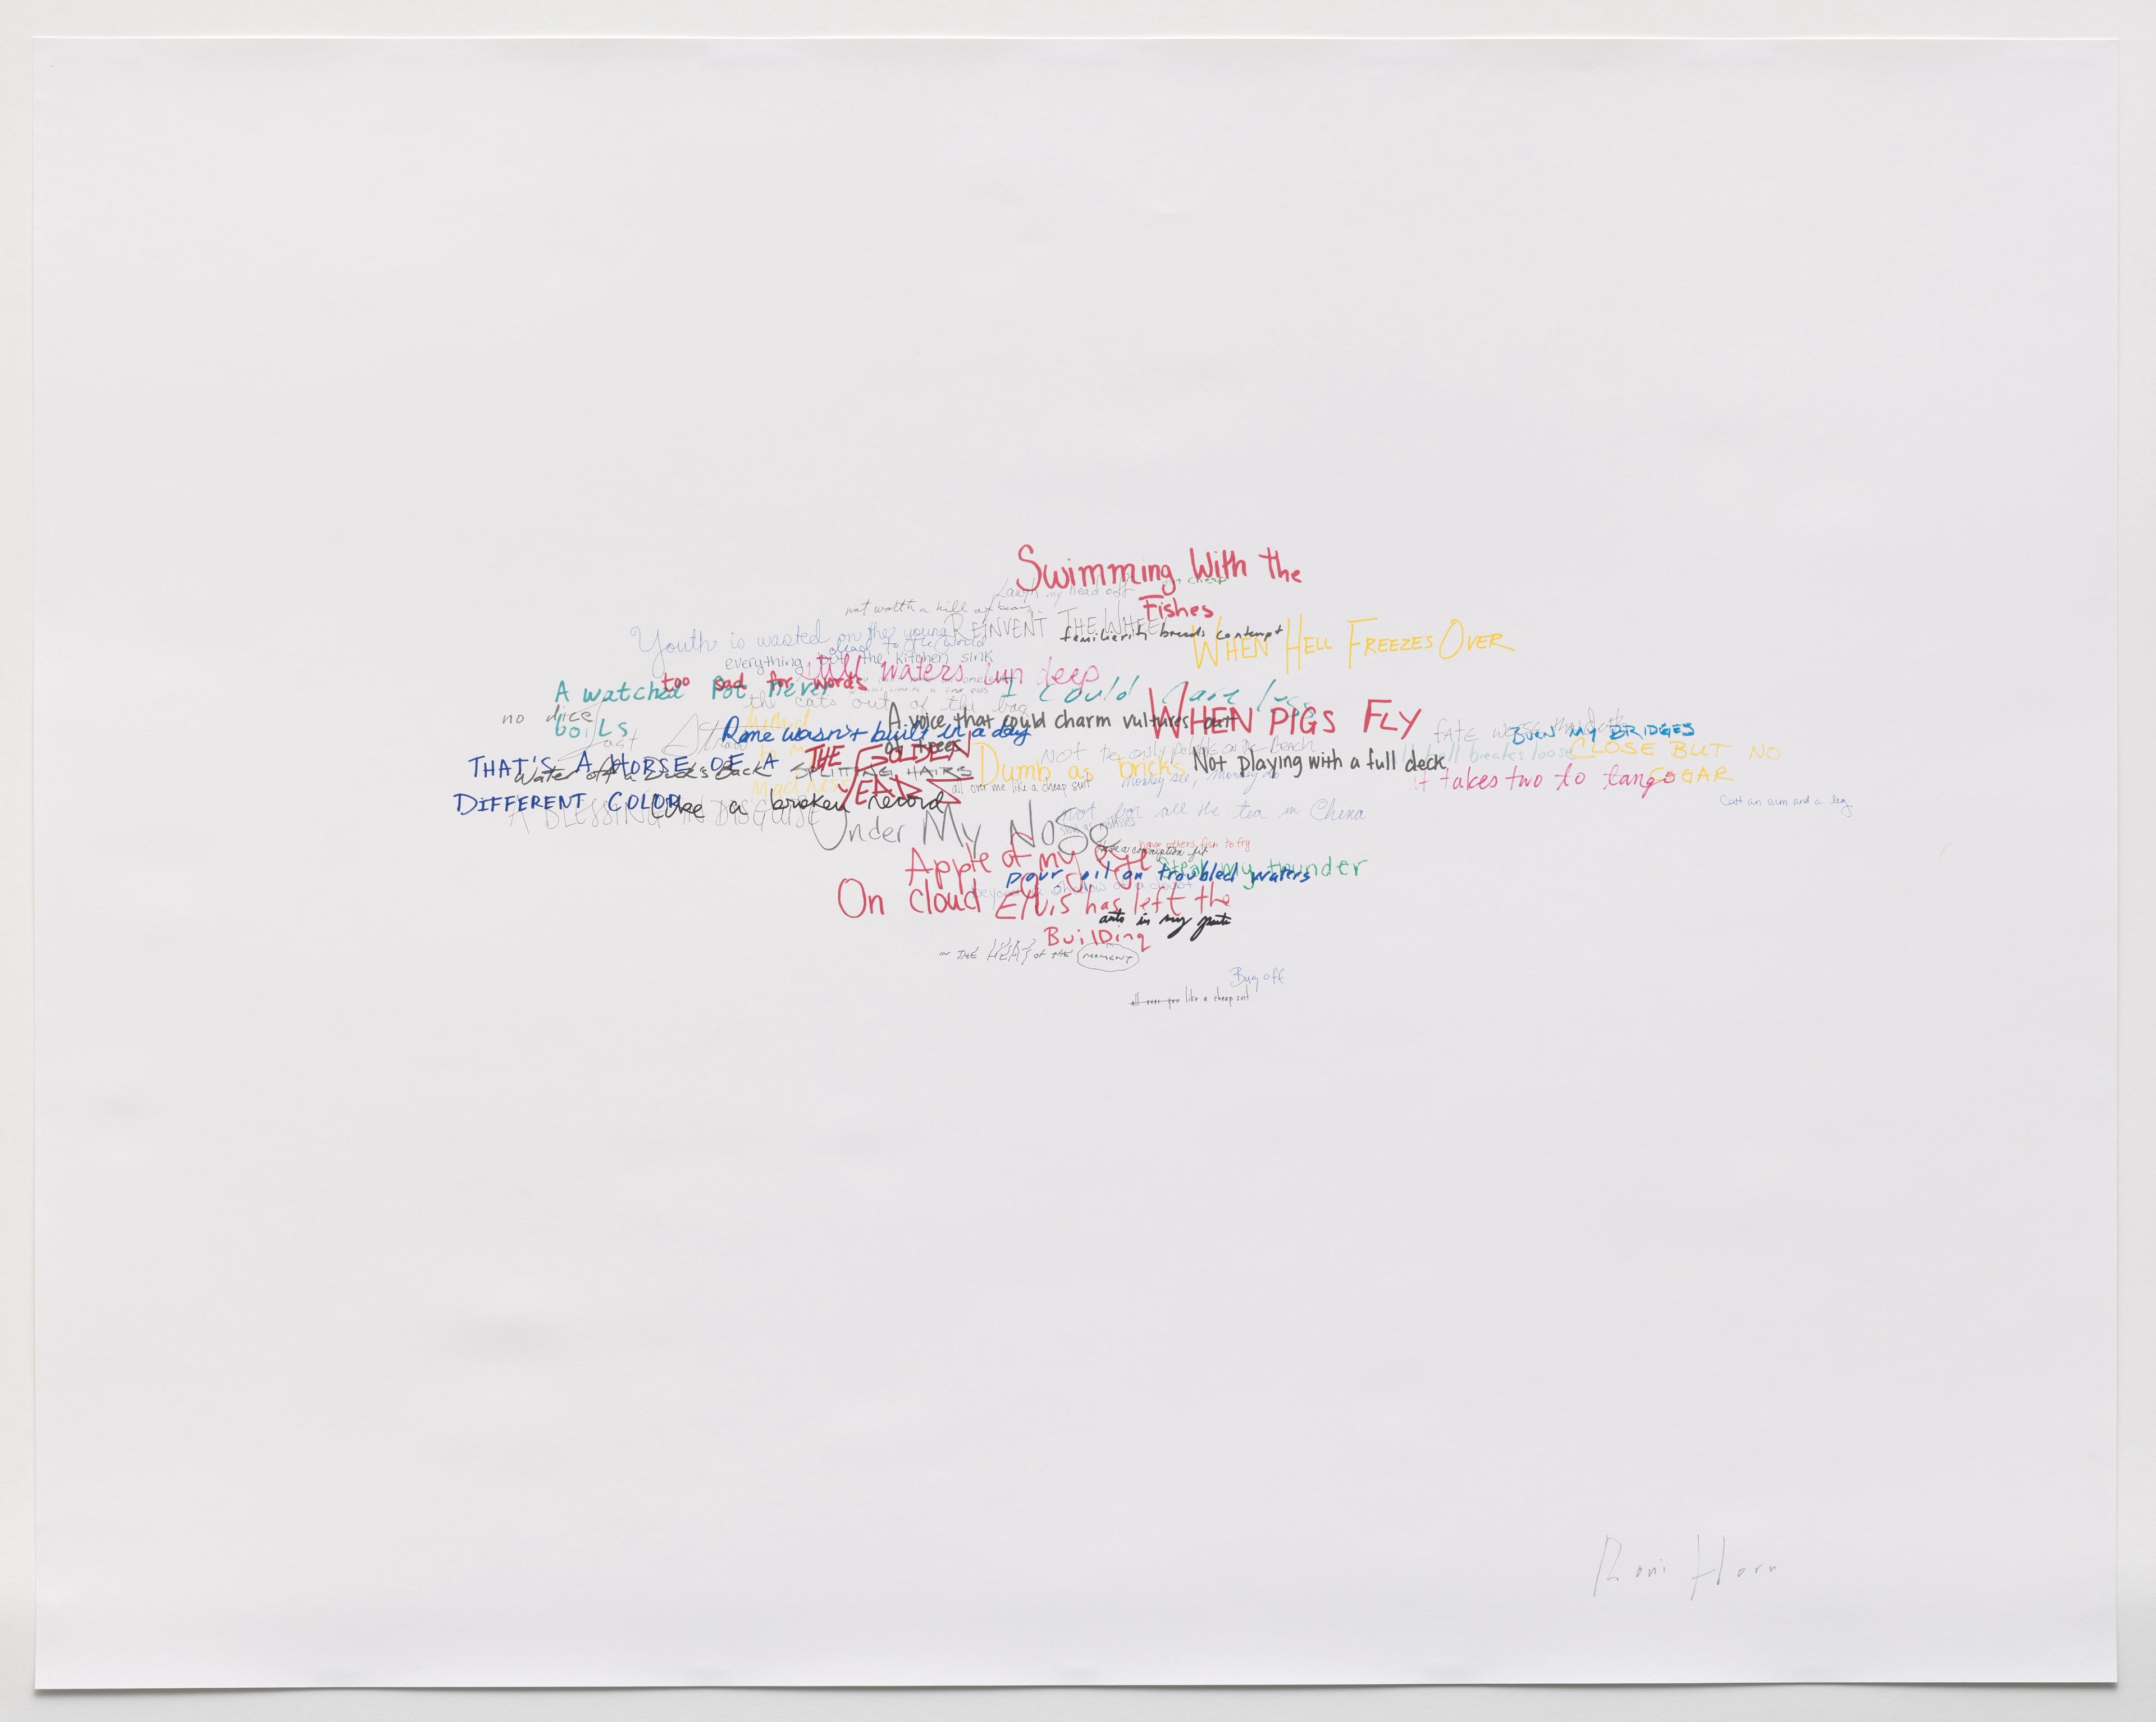 Swimming With the
Fishes
Laugh my head off
cheap
not worth a hill of beans
REINVENT THE WHEEL
familiarity breeds contempt
Youth is wasted on the young
dead to the world
WHEN HELL FREEZES OVER
everything but the kitchen sink
Still waters run deep
too sad for words
A watched Pot never
boiLs
I could care less
the cats out of the bag
no dice
Last Straw
A voice that could charm vultures out
of trees
WHEN PIGS FLY
Rome wasn't built in a day
FATE WORSE than death
BURN MY BRIDGES
THE GOLDEN
YEARS
Not the only pebble on the beach
all hell breaks loose
CLOSE BUT NO
CIGAR
THAT'S A HORSE OF A
DIFFERENT COLOR
Water off a Duck's Back
SPLITTING HAIRS
Method
to my
Madness
Dumb as bricks
Not playing with a full deck
monkey see, monkey do
it takes two to tango
all over me like a cheap suit
Like a broken record
A BLESSING IN DISGUISE
Cost an arm and a leg
not for all the tea in China
Under My NoSe
have others fish to fry
have a conniption fit
Apple of my eye
Steal my thunder
pour oil on troubled waters
beyond a shadow of a doubt
On cloud
Elvis has left the
BuilDing
ants in my pants
IN THE HEAT of THE MOMENT
Bug off
all over you like a cheap suit
Roni Horn